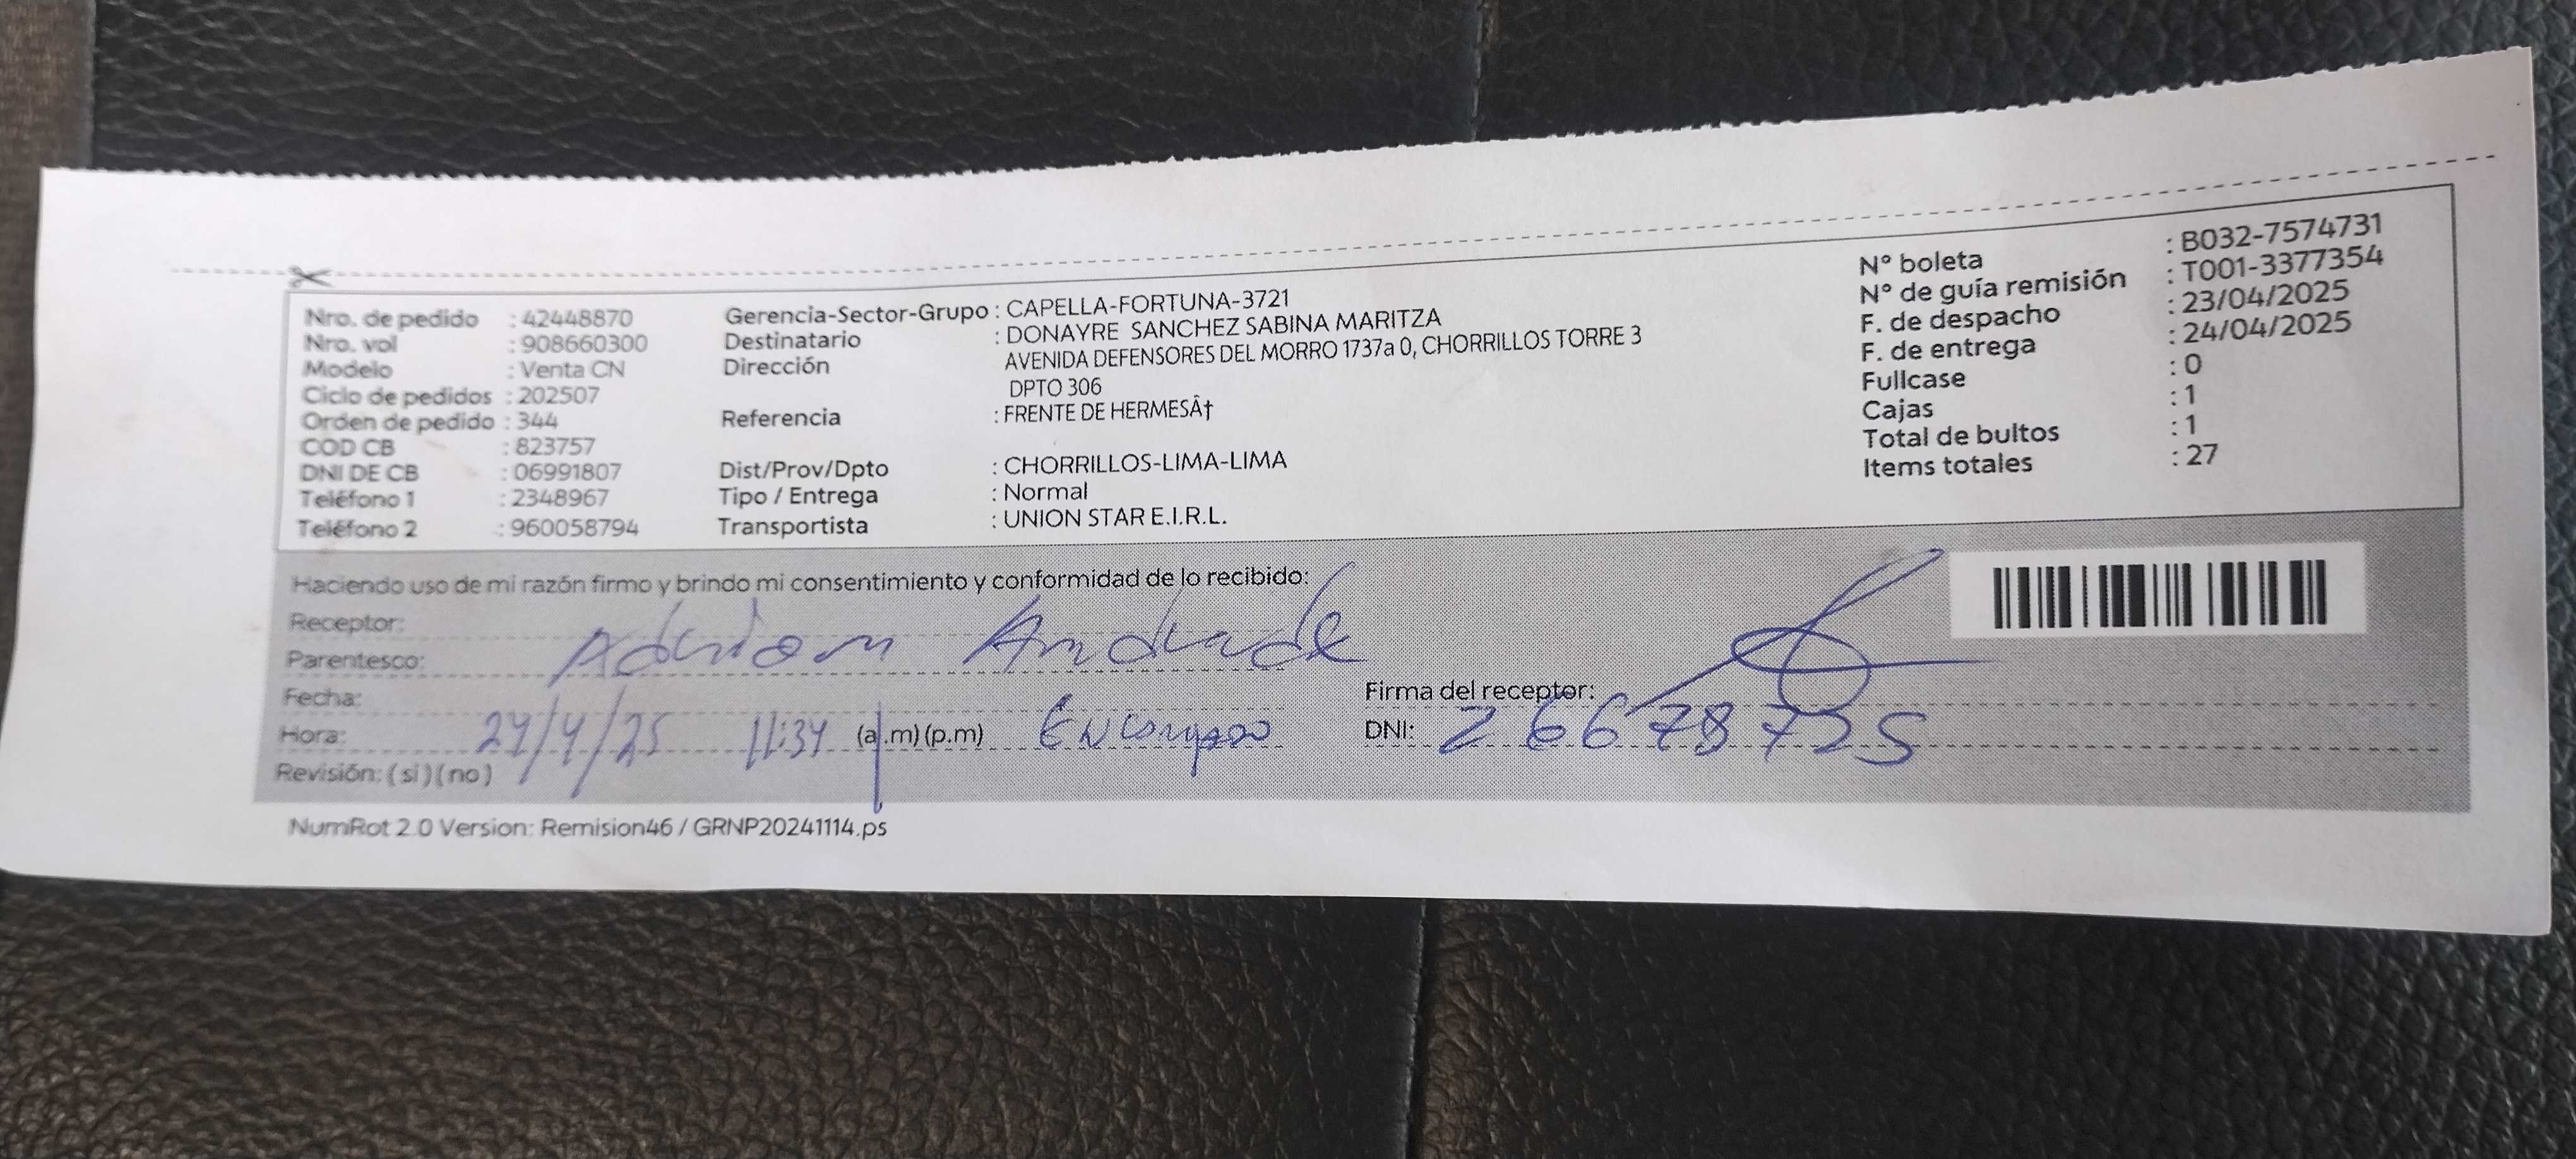 Nro. de pedido : 42448870
Nro. vol : 908660300
Modelo : Venta CN
Ciclo de pedidos : 202507
Orden de pedido : 344
COD CB : 823757
DNI DE CB : 06991807
Teléfono 1 : 2348967
Teléfono 2 : 960058794
Gerencia-Sector-Grupo : CAPELLA-FORTUNA-3721
Destinatario : DONAYRE SANCHEZ SABINA MARITZA
Dirección AVENIDA DEFENSORES DEL MORRO 1737a 0, CHORRILLOS TORRE 3
DPTO 306
Referencia : FRENTE DE HERMESÂ†
Dist/Prov/Dpto : CHORRILLOS-LIMA-LIMA
Tipo / Entrega : Normal
Transportista : UNION STAR E.I.R.L.
N° boleta : B032-7574731
N° de guía remisión : T001-3377354
F. de despacho : 23/04/2025
F. de entrega : 24/04/2025
Fullcase : 0
Cajas : 1
Total de bultos : 1
Items totales : 27
Haciendo uso de mi razón firmo y brindo mi consentimiento y conformidad de lo recibido:
Receptor:
Parentesco: Adriam Andrade
Fecha:
Hora: 24/4/25 11:34 (a.m) (p.m)
Revisión: (si) (no)
Firma del receptor:
DNI: 26678725
NumRot 2.0 Version: Remision46 / GRNP20241114.ps